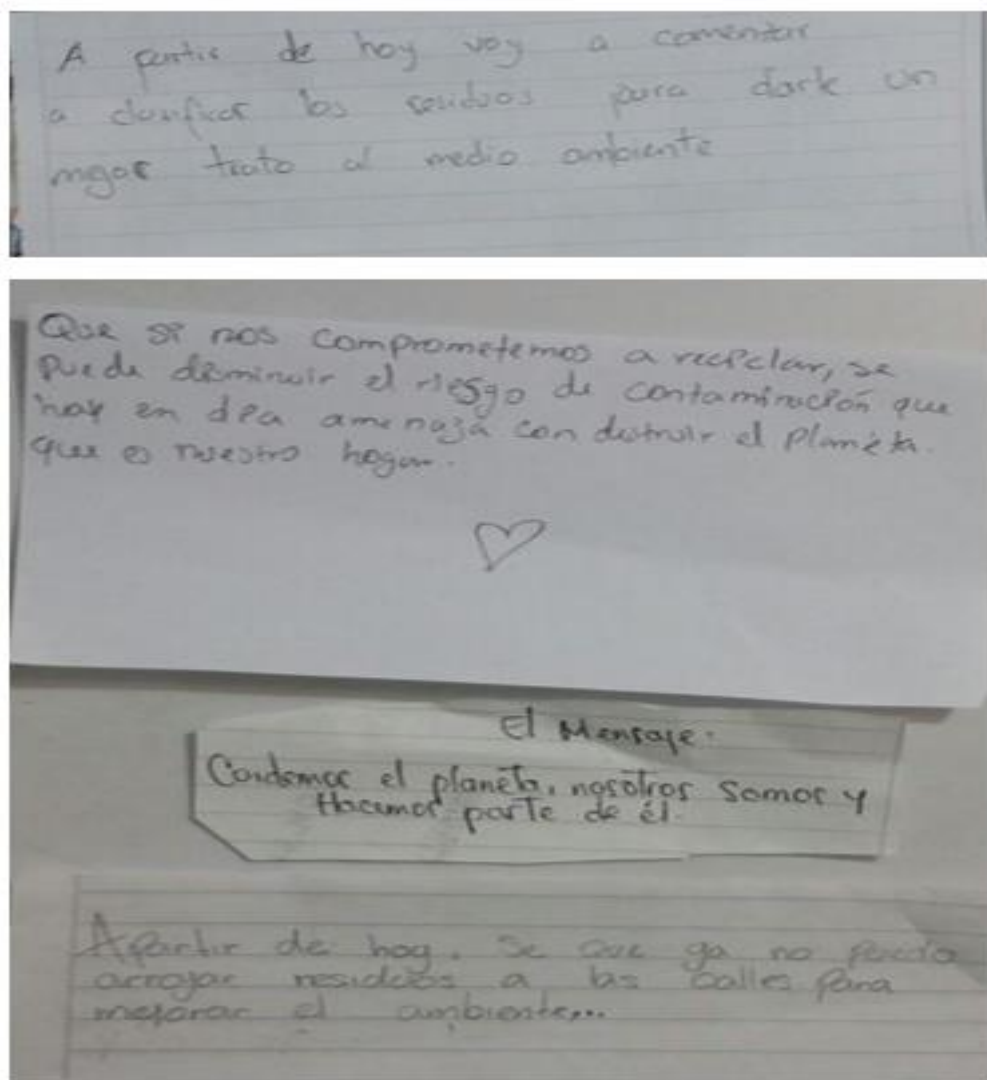 A partir de hoy voy a comentar
a clasificar los residuos para darle un
mejor trato al medio ambiente
Que si nos comprometemos a reciclar, se
puede disminuir el riesgo de contaminación que
hoy en dia amenaza con destruir el planeta.
que es nuestro hogar.
El Mensaje.
Cuidemos el planeta, nosotros somos y
Hacemos parte de él.
Apartir de hoy. Se que ya no puedo
arrojar residuos a las calles para
mejorar el ambiente...